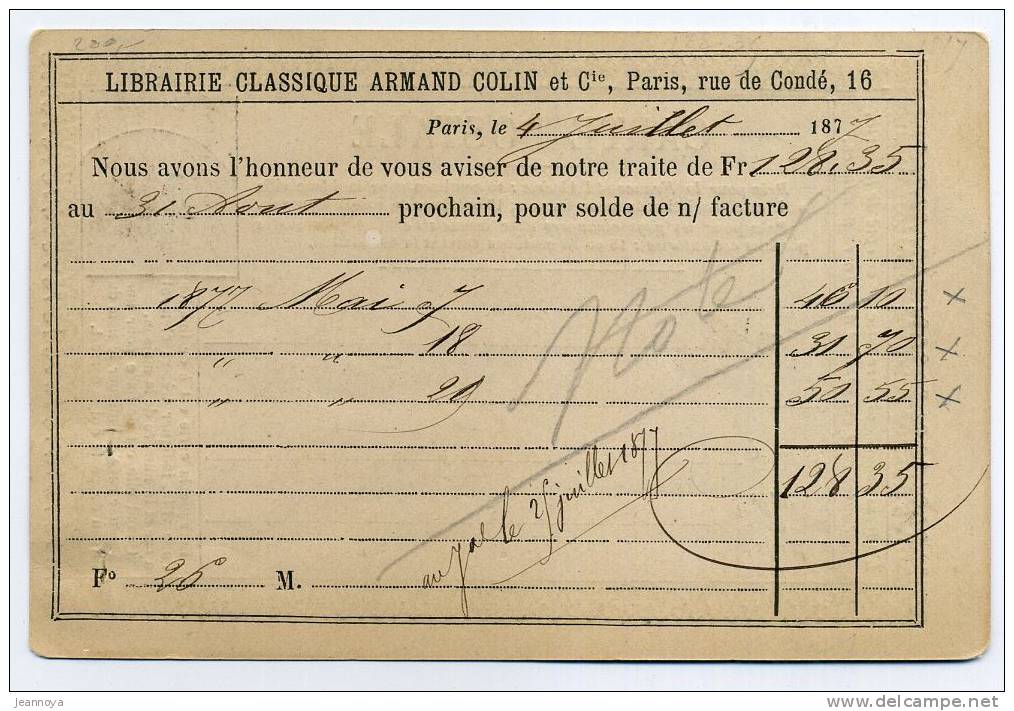 LIBRAIRIE CLASSIQUE ARMAND COLIN et Cie, Paris, rue de Condé, 16
Paris, le 4 Juillet 1877
Nous avons l'honneur de vous aviser de notre traite de Fr 128,35
au 31 Aout prochain, pour solde de n/ facture
1877 Mai 7 46 10 x
" " 18 31 70 x
" " 29 50 55 x
Noté
128 35
au Jal le 25 juillet 1877
Fo 26 M.
jeannoya
www.delcampe.net